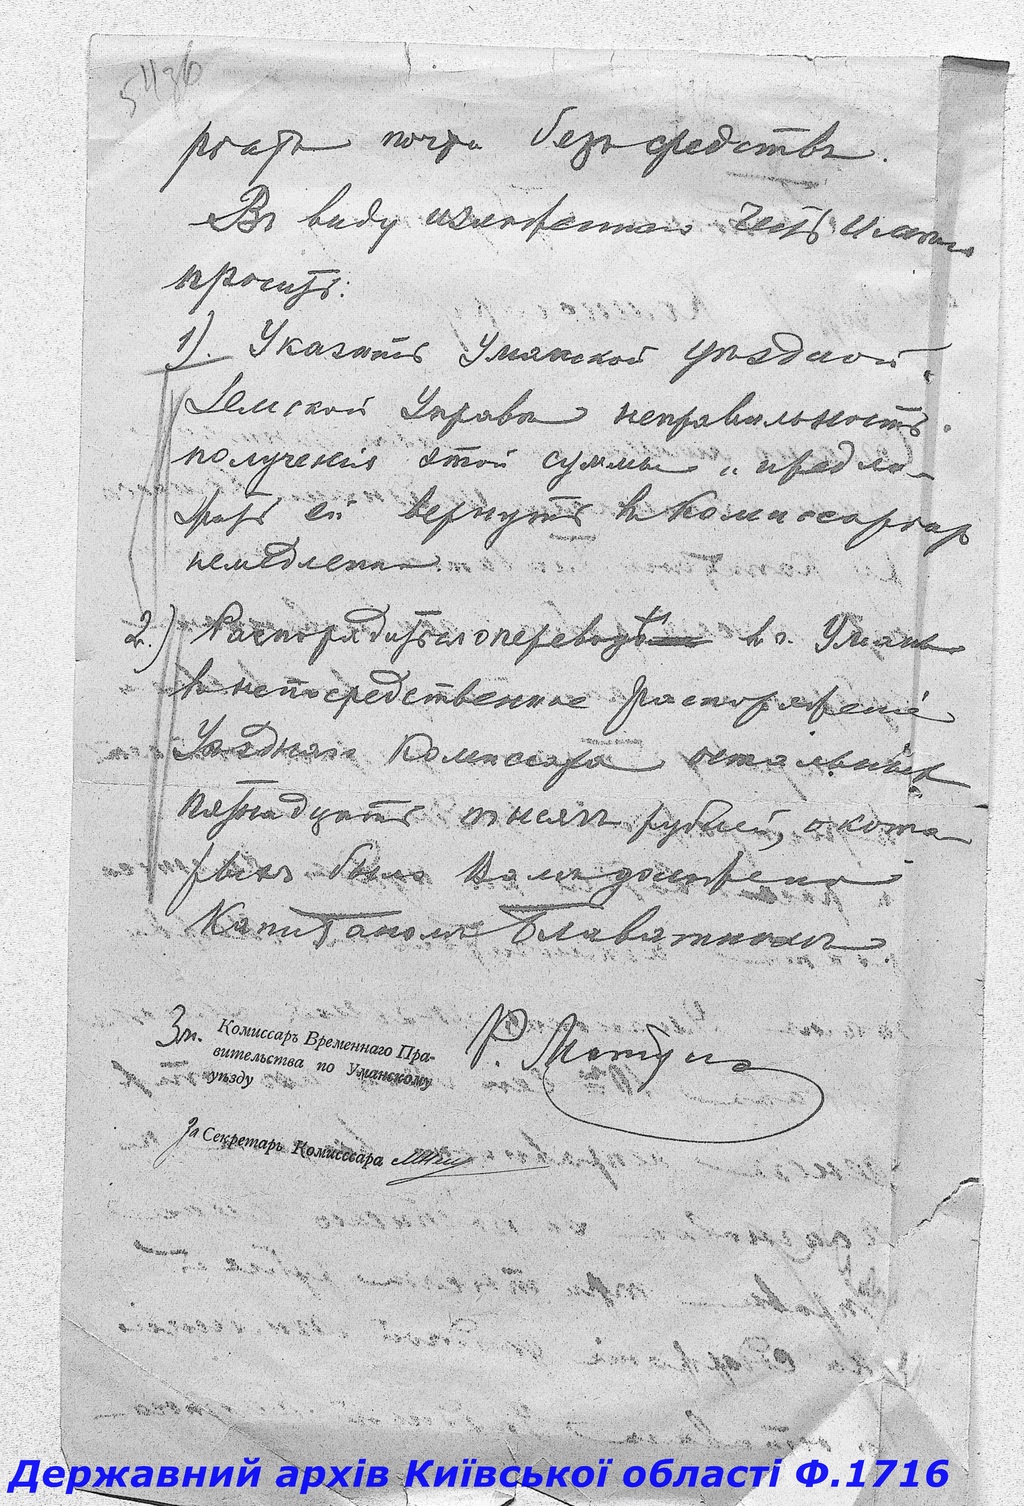 5436
почти безъ средствъ.
Въ виду изложеннаго честь имею
просить:
1). Указать Уманской уездной
Земской Управе неправильность
полученiя этой суммы и предло-
жить ей вернуть въ Комиссарiатъ
немедленно.
2.) Распорядиться о переводе въ г. Умань
въ непосредственное распоряженiе
Уезднаго Комиссара остальныхъ
пятнадцать тысячъ рублей, о кото
рыхъ было Вамъ доложено
Капитаномъ
Зм. Комиссаръ Временнаго Пра-
вительства по Уманскому
уѣзду
Р.
За Секретарь Комисссара
Державний архів Київської області Ф.1716